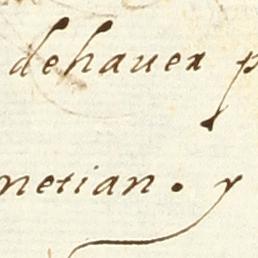 dehauer p
metian. y